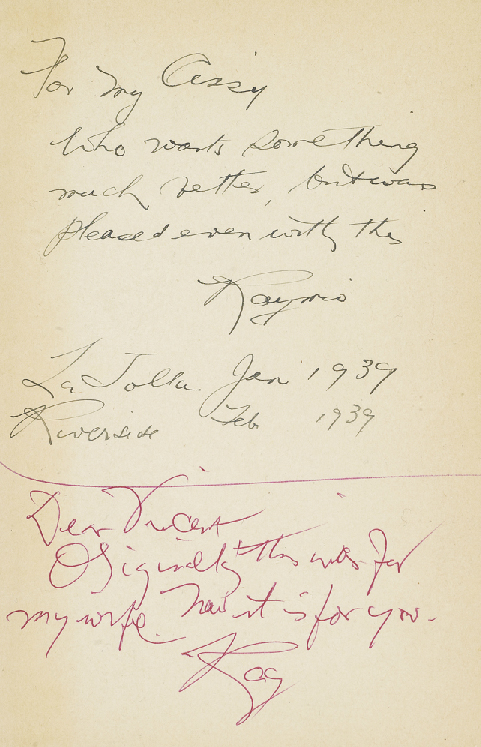 For my Cissy
who wants something
much better, but was
pleased even with this
Raymio
La Jolla. Jan 1939
Riverside Feb 1939
Dear Vincent
Originally this was for
my wife. Now it is for you.
Ray